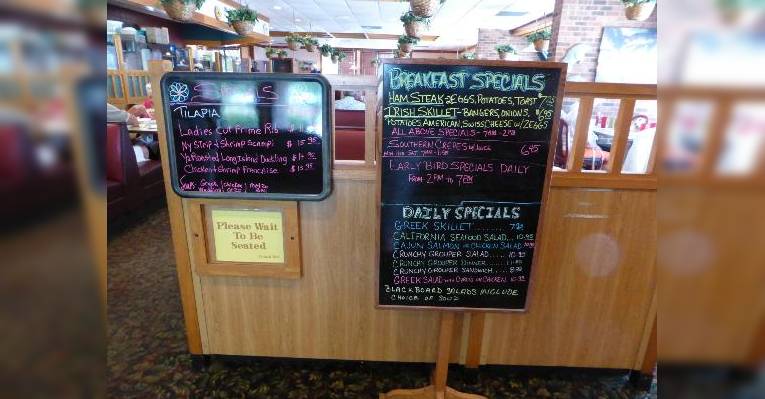 Specials
TILAPIA
Ladies Cut Prime Rib $
NY Strip & Shrimp Scampi $ 15.95
½ Roasted Long Island Duckling $
Chicken & Shrimp Francaise $
Please Wait
To Be
Seated
BREAKFAST SPECIALS
HAM STEAK 2 EGGS, POTATOES, TOAST
IRISH SKILLET - BANGERS, ONIONS,
POTATOES AMERICAN, SWISS CHEESE w/2 EGGS
ALL ABOVE SPECIALS - 7AM - 2PM
SOUTHERN CREPES 6.45
EARLY BIRD SPECIALS DAILY
FROM 2PM TO
DAILY SPECIALS
GREEK SKILLET
CALIFORNIA SEAFOOD SALAD... 10.95
CAJUN SALMON OR CHICKEN SALAD
CRUNCHY GROUPER SALAD..... 10.95
CRUNCHY GROUPER DINNER
CRUNCHY GROUPER SANDWICH.... 8.95
GREEK SALAD WITH GYROS OR CHICKEN
BLACKBOARD SALADS INCLUDE
CHOICE OF SOUP